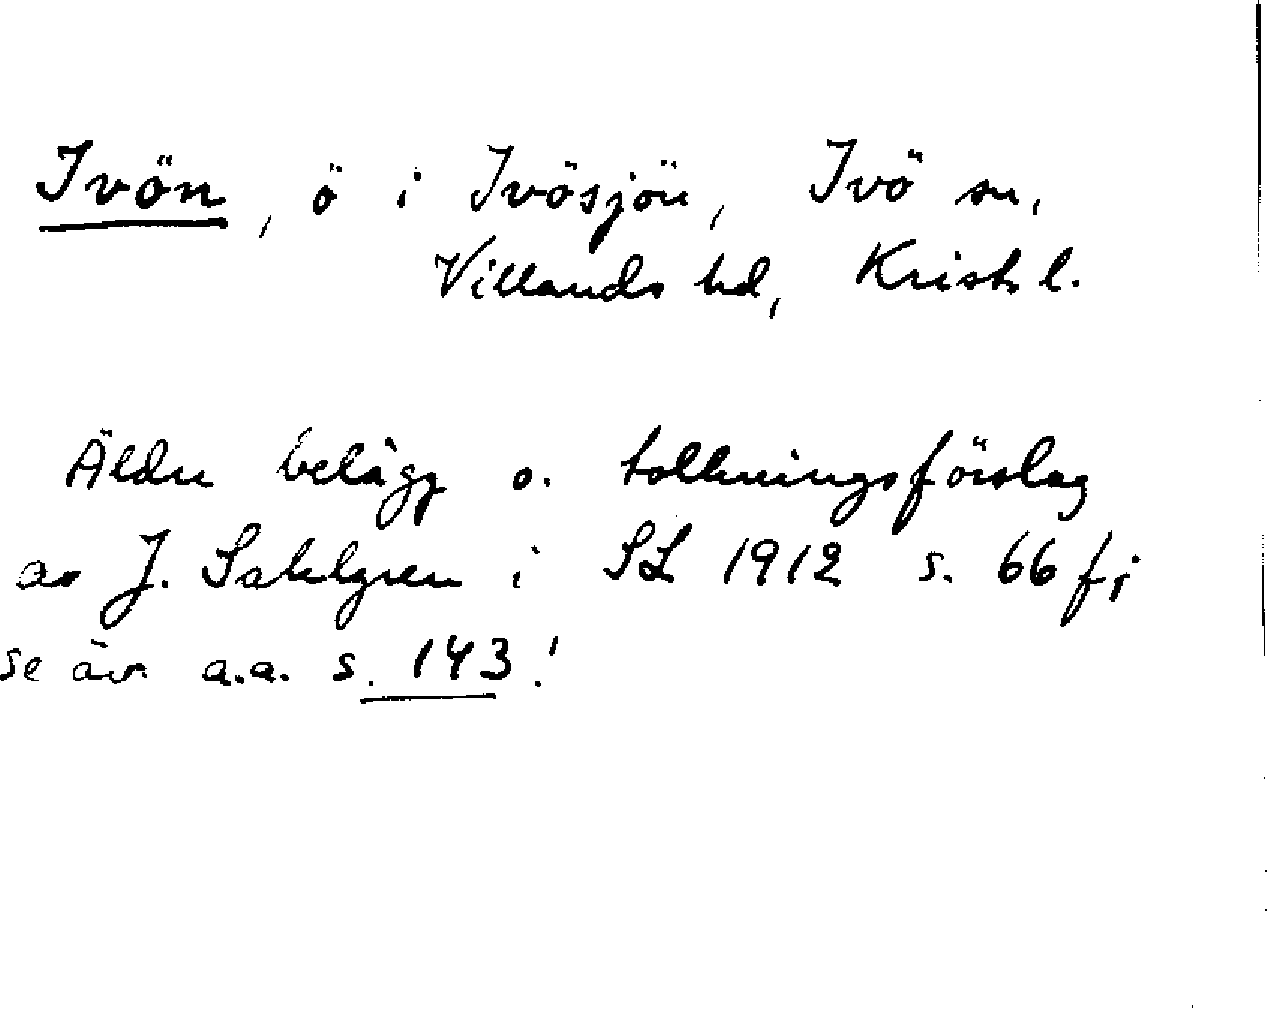 Ivön, ö i Ivösjön, Ivö sn,
Villands hd, Krist. l.
Äldre belägg o. tolkningsförslag
av J. Sahlgren i SL 1912 s. 66 f;
se äv. a.a. s. 143!